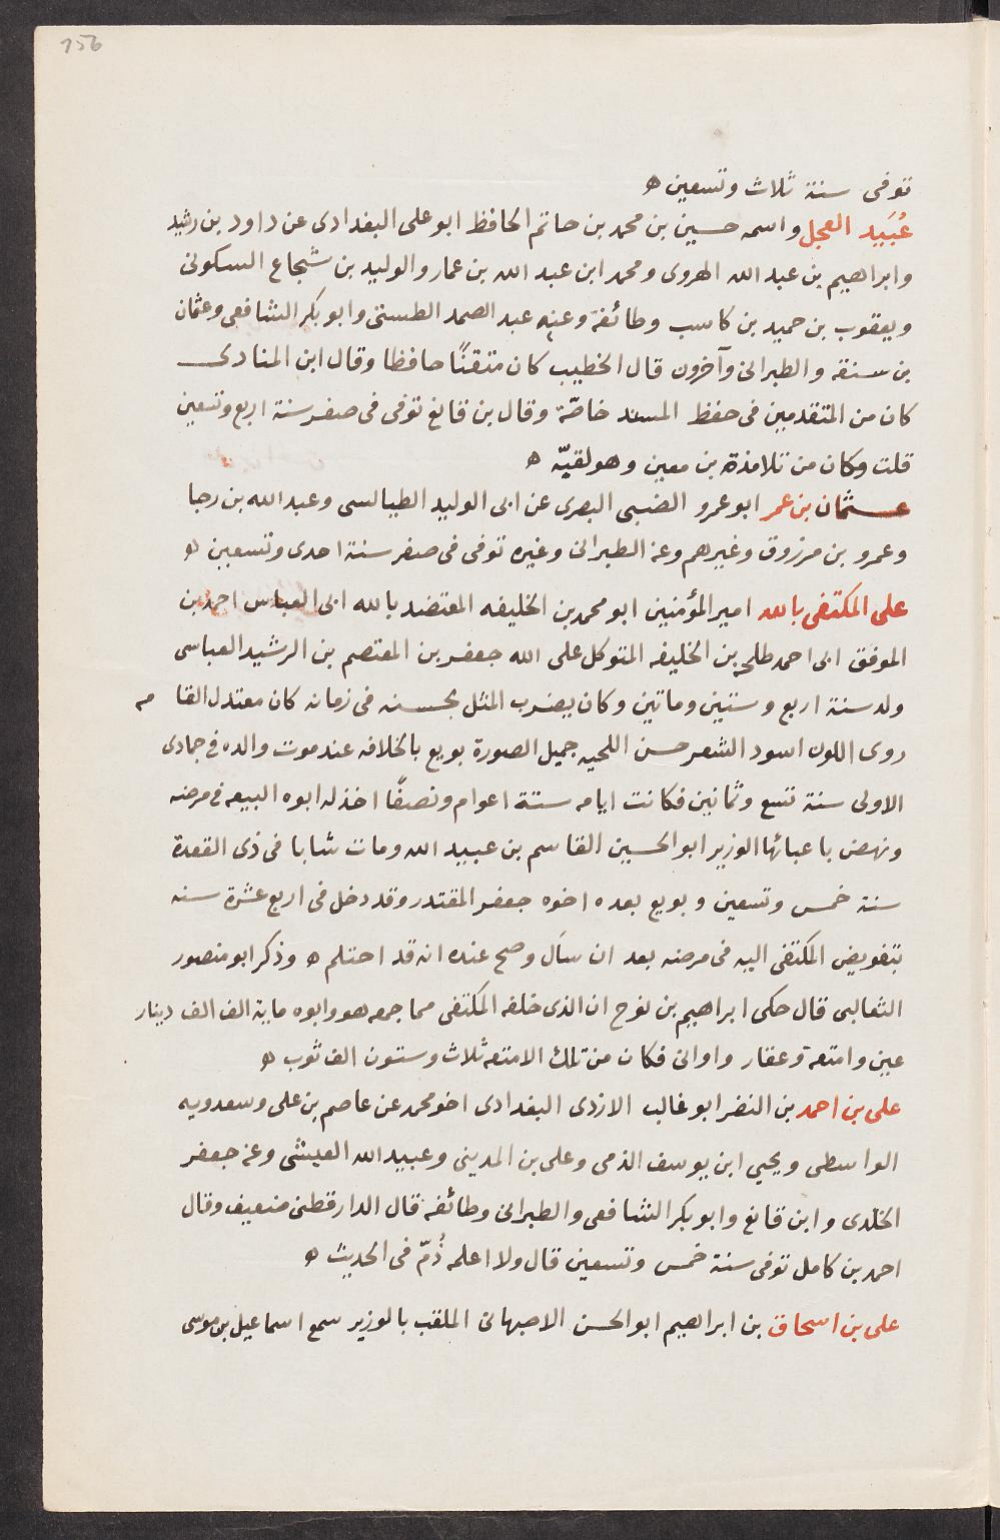 156
توفى سنة ثلاث وتسعين ه
عُبَيد العجل واسمه حسين بن محمد بن حاتم الحافظ ابو على البغدادى عن داود بن رشيد
وابراهيم بن عبد الله الهروى ومحمد ابن عبد الله بن عمار والوليد بن شجاع السكونى
ويعقوب بن حميد بن كاسب وطائفة وعنه عبد الصمد الطستى وابو بكر الشافعى وعثمان
بن سنقه والطبرانى وآخرون قال الخطيب كان متقنًا حافظا وقال ابن المنادى
كان من المتقدمين فى حفظ المسند خاصّة وقال بن قانع توفى فى صفر سنة اربع وتسعين
قلت وكان من تلامذة بن معين وهو لقبّه ه
عثمان بن عمر ابو عمرو الضبى البصرى عن ابى الوليد الطيالسى وعبد الله بن رجا
وعمرو بن مرزوق وغيرهم وعنه الطبرانى وغيره توفى فى صفر سنة احدى وتسعين ه
على المكتفى بالله امير المؤمنين ابو محمد بن الخليفه المعتضد بالله ابى العباس احمد بن
الموفق ابى احمد طلحه بن الخليفه المتوكل على الله جعفر بن المعتصم بن الرشيد العباسى
ولد سنة اربع وستين وماتين وكان يضرب المثل بحسنه فى زمانه كان معتدل القا مه
دوى اللون اسود الشعر حسن اللحيه جميل الصورة بويع بالخلافه عند موت والده فى جمادى
الاولى سنة تسع وثمانين فكانت ايامه ستة اعوام ونصفًا اخذ له ابوه البيعه فى مرضه
ونهض باعبائها الوزير ابو الحسين القاسم بن عبيد الله ومات شابا فى ذى القعدة
سنة خمس وتسعين وبويع بعده اخوه جعفر المقتدر وقد دخل فى اربع عشرة سنه
بتفويض المكتفى اليه فى مرضه بعد ان سأل وصح عنده انه قد احتلم ه وذكر ابو منصور
الثعالبى قال حكى ابراهيم بن نوح ان الذى خلفه المكتفى مما جمعه هو وابوه ماية الف الف دينار
عين وامتعة وعقار واوانى فكان من تلك الامتعه ثلاث وستون الف ثوب ه
على بن احمد بن النضر ابو غالب الازدى البغدادى اخو محمد عن عاصم بن على وسعدويه
الواسطى ويحيى ابن يوسف الذمى وعلى بن المدينى وعبيد الله العيشى وعنه جعفر
الخلدى وابن قانع وابو بكر الشافعى والطبرانى وطائفه قال الدارقطنى ضعيف وقال
احمد بن كامل توفى سنة خمس وتسعين قال ولا اعلمه ذُمّ فى الحديث ه
على بن اسحاق بن ابراهيم ابو الحسن الاصبهانى الملقب بالوزير سمع اسماعيل بن موسى